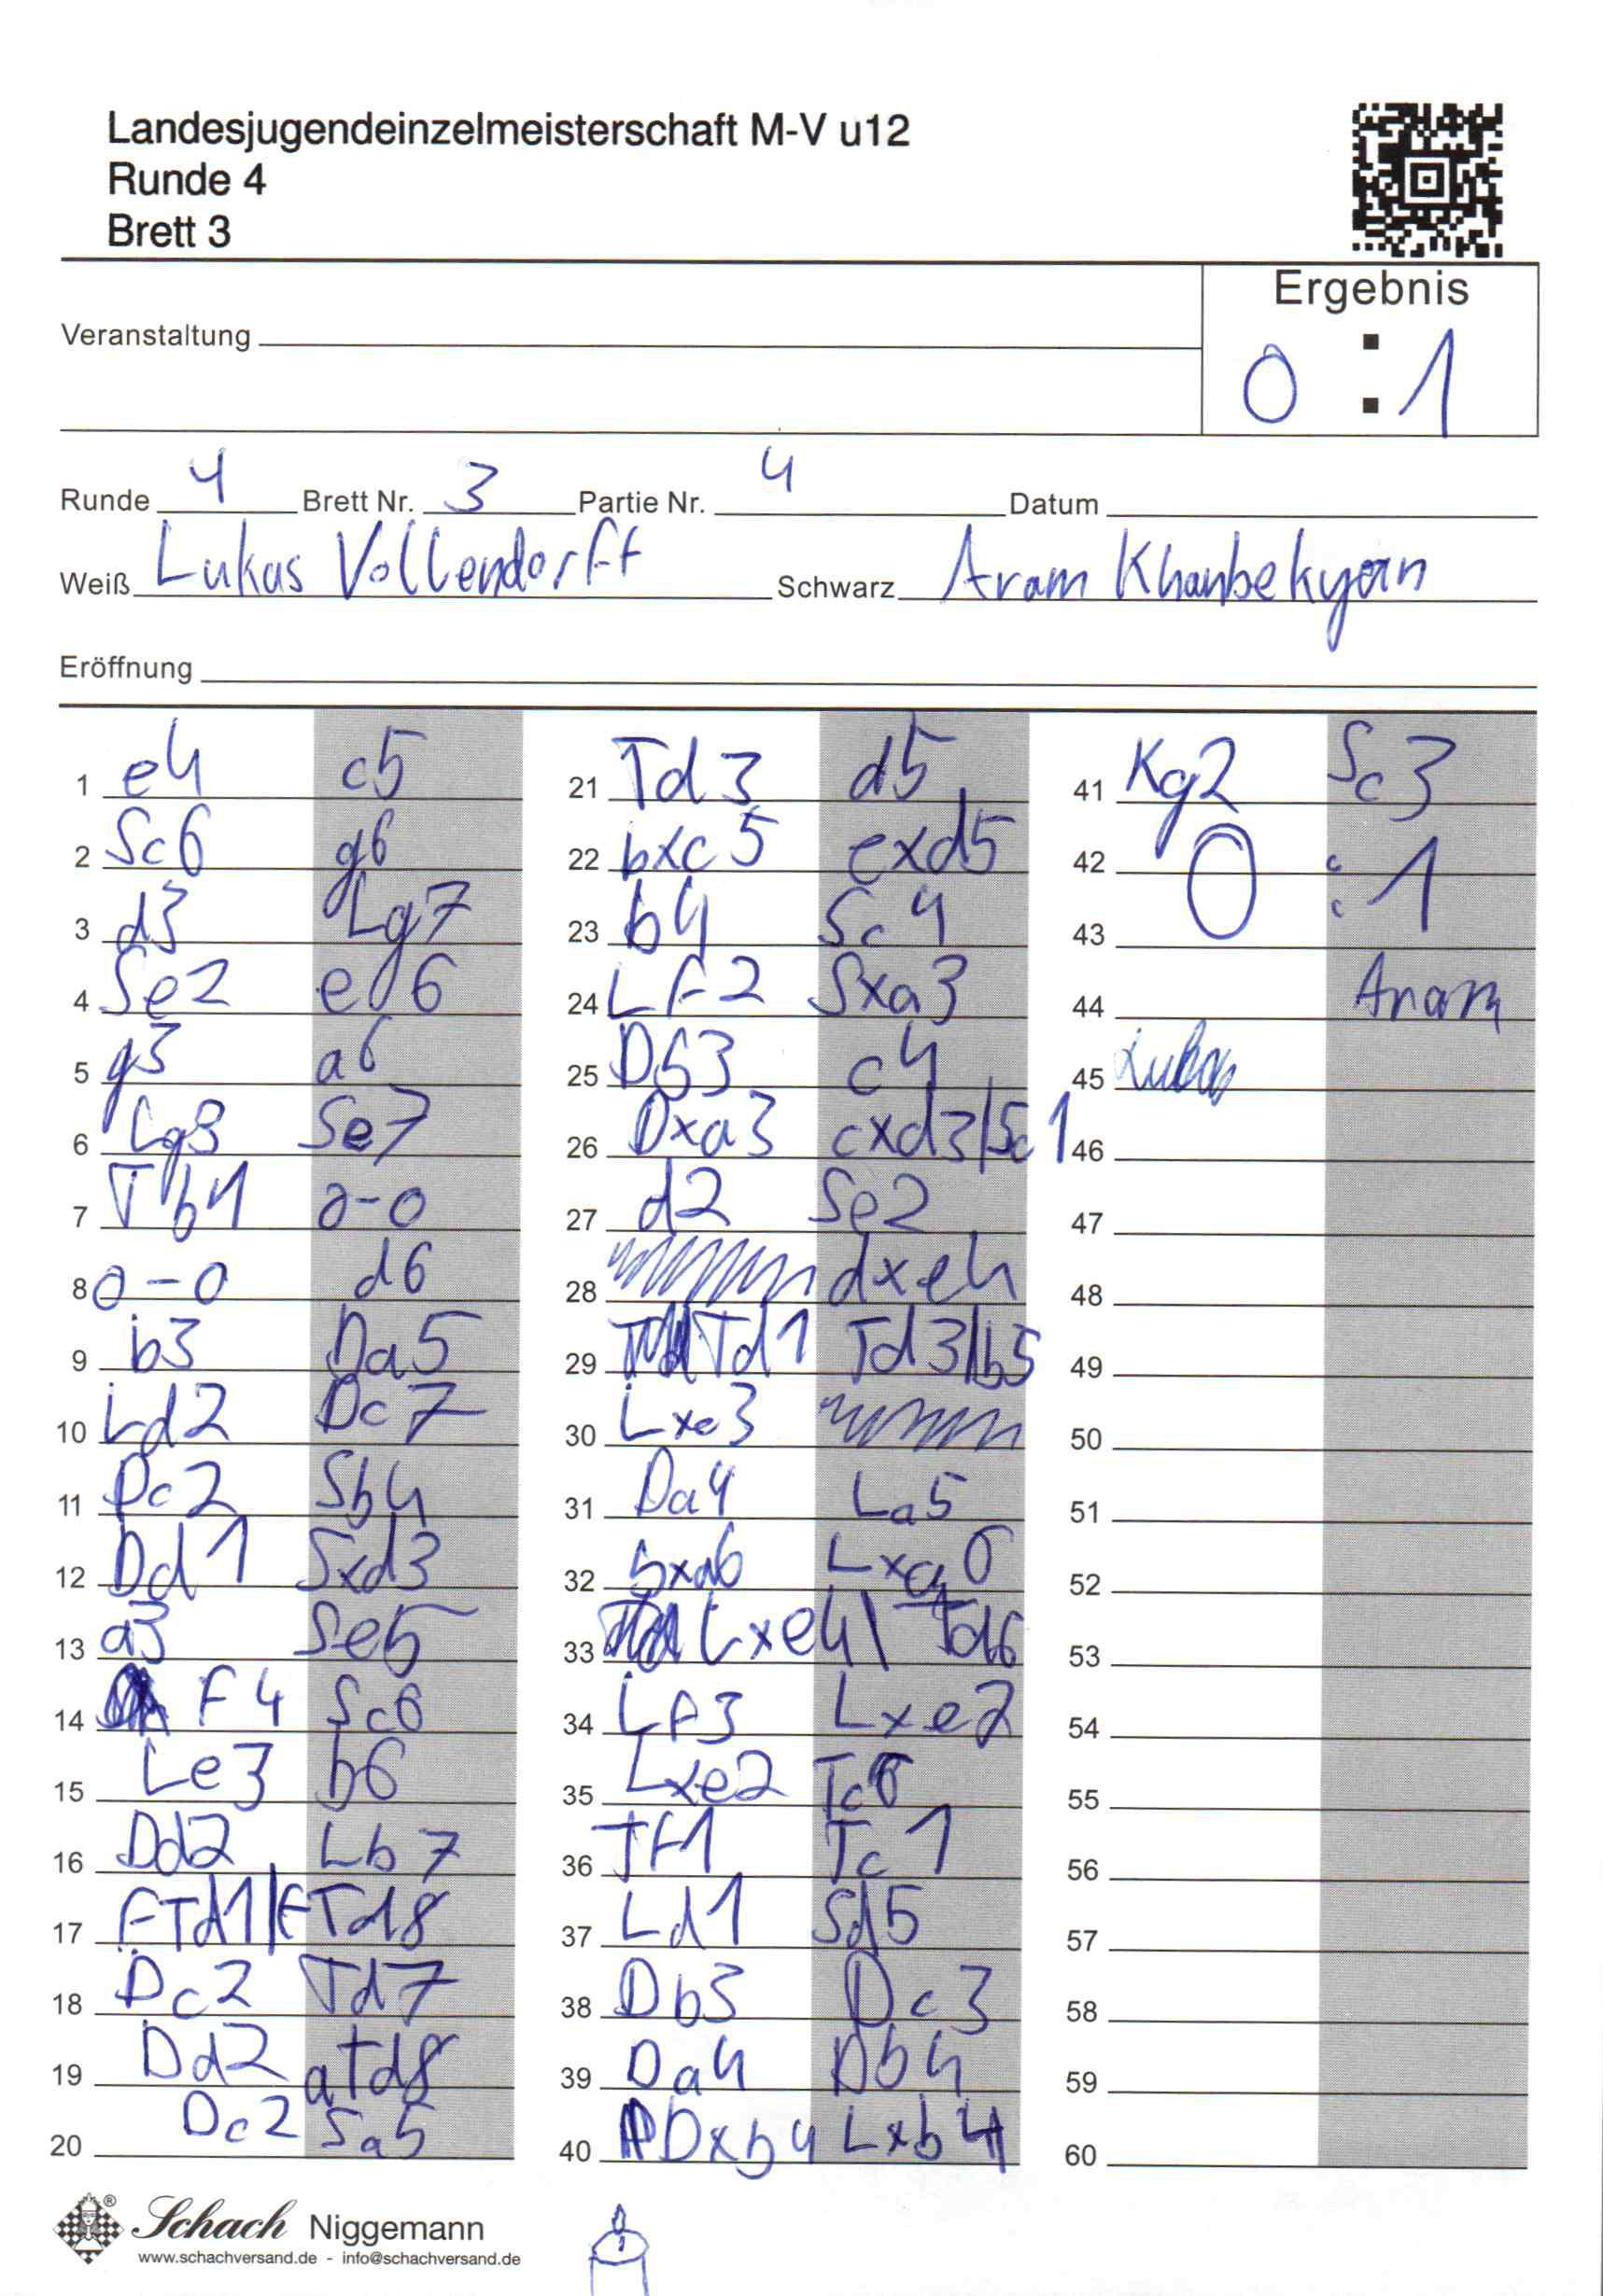 Landesjugendeinzelmeisterschaft M-V u12
Runde 4
Brett 3
Ergebnis
Veranstaltung
0 : 1
Runde 4 Brett Nr. 3 Partie Nr. 4 Datum
Weiß Lukas Vollendorff Schwarz Aram Khanbekyan
Eröffnung
1 e4 c5
2 Sc6 g6
3 d3 Lg7
4 Se2 e6
5 g3 a6
6 Lg3 Se7
7 Tb1 0-0
8 0-0 d6
9 b3 Da5
10 Ld2 Dc7
11 Dc2 Sb4
12 Dd1 Sxd3
13 a3 Se5
14 F4 Sc6
15 Le3 b6
16 Dd2 Lb7
17 FTd1 FTd8
18 Dc2 Td7
19 Dd2 aTd8
20 Dc2 Sa5
21 Td3 d5
22 bxc5 exd5
23 b4 Sc4
24 LF2 Sxa3
25 Db3 c4
26 Dxa3 cxd3/Sc1
27 d2 Se2
28 dxe4
29 Td1 Td3/b5
30 Lxe3
31 Da4 La5
32 bxa6 Lxa6
33 Lxe4 Td6
34 LF3 Lxe2
35 Lxe2 Tc6
36 TF1 Tc1
37 Ld1 Sd5
38 Db3 Dc3
39 Da4 Db4
40 Dxb4 Lxb4
41 Kg2 Sc3
42 0 : 1
43
44 Aram
45 Lukas
46
47
48
49
50
51
52
53
54
55
56
57
58
59
60
Schach Niggemann
www.schachversand.de - info@schachversand.de